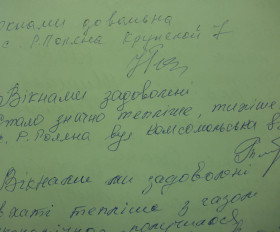 ікнами довольна
с. Р.Поляна Крупской 7
Вікнами задоволені
Стало значно тепліше, тихіше
с. Р. Поляна вул Комсомольська 8
Вікнами ми задоволені
в хаті тепліше з газом